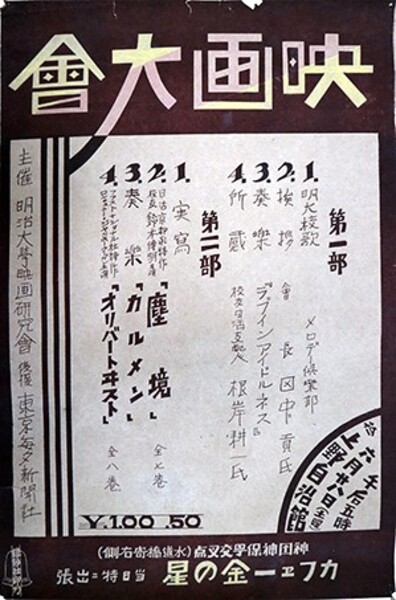 映画大會
第一部
1. 明大校歌 メロデー倶楽部
2. 挨拶 會長 田中貢氏
3. 奏樂 「ラブインアイドルネス」
4. 所感 校友日活支配人 根岸耕一氏
第二部
1. 実寫
2. 「塵境」 全七巻
3. 奏樂 「カルメン」
4. 「オリバートヰスト」 全八巻
主催 明治大學映画研究會 後援 東京毎夕新聞社
午后五時
六月廿八日
上野自治館
¥1.00 .50
神田神保學交叉点(水道橋寄右側)
カフヱー金の星 当日特ニ出張